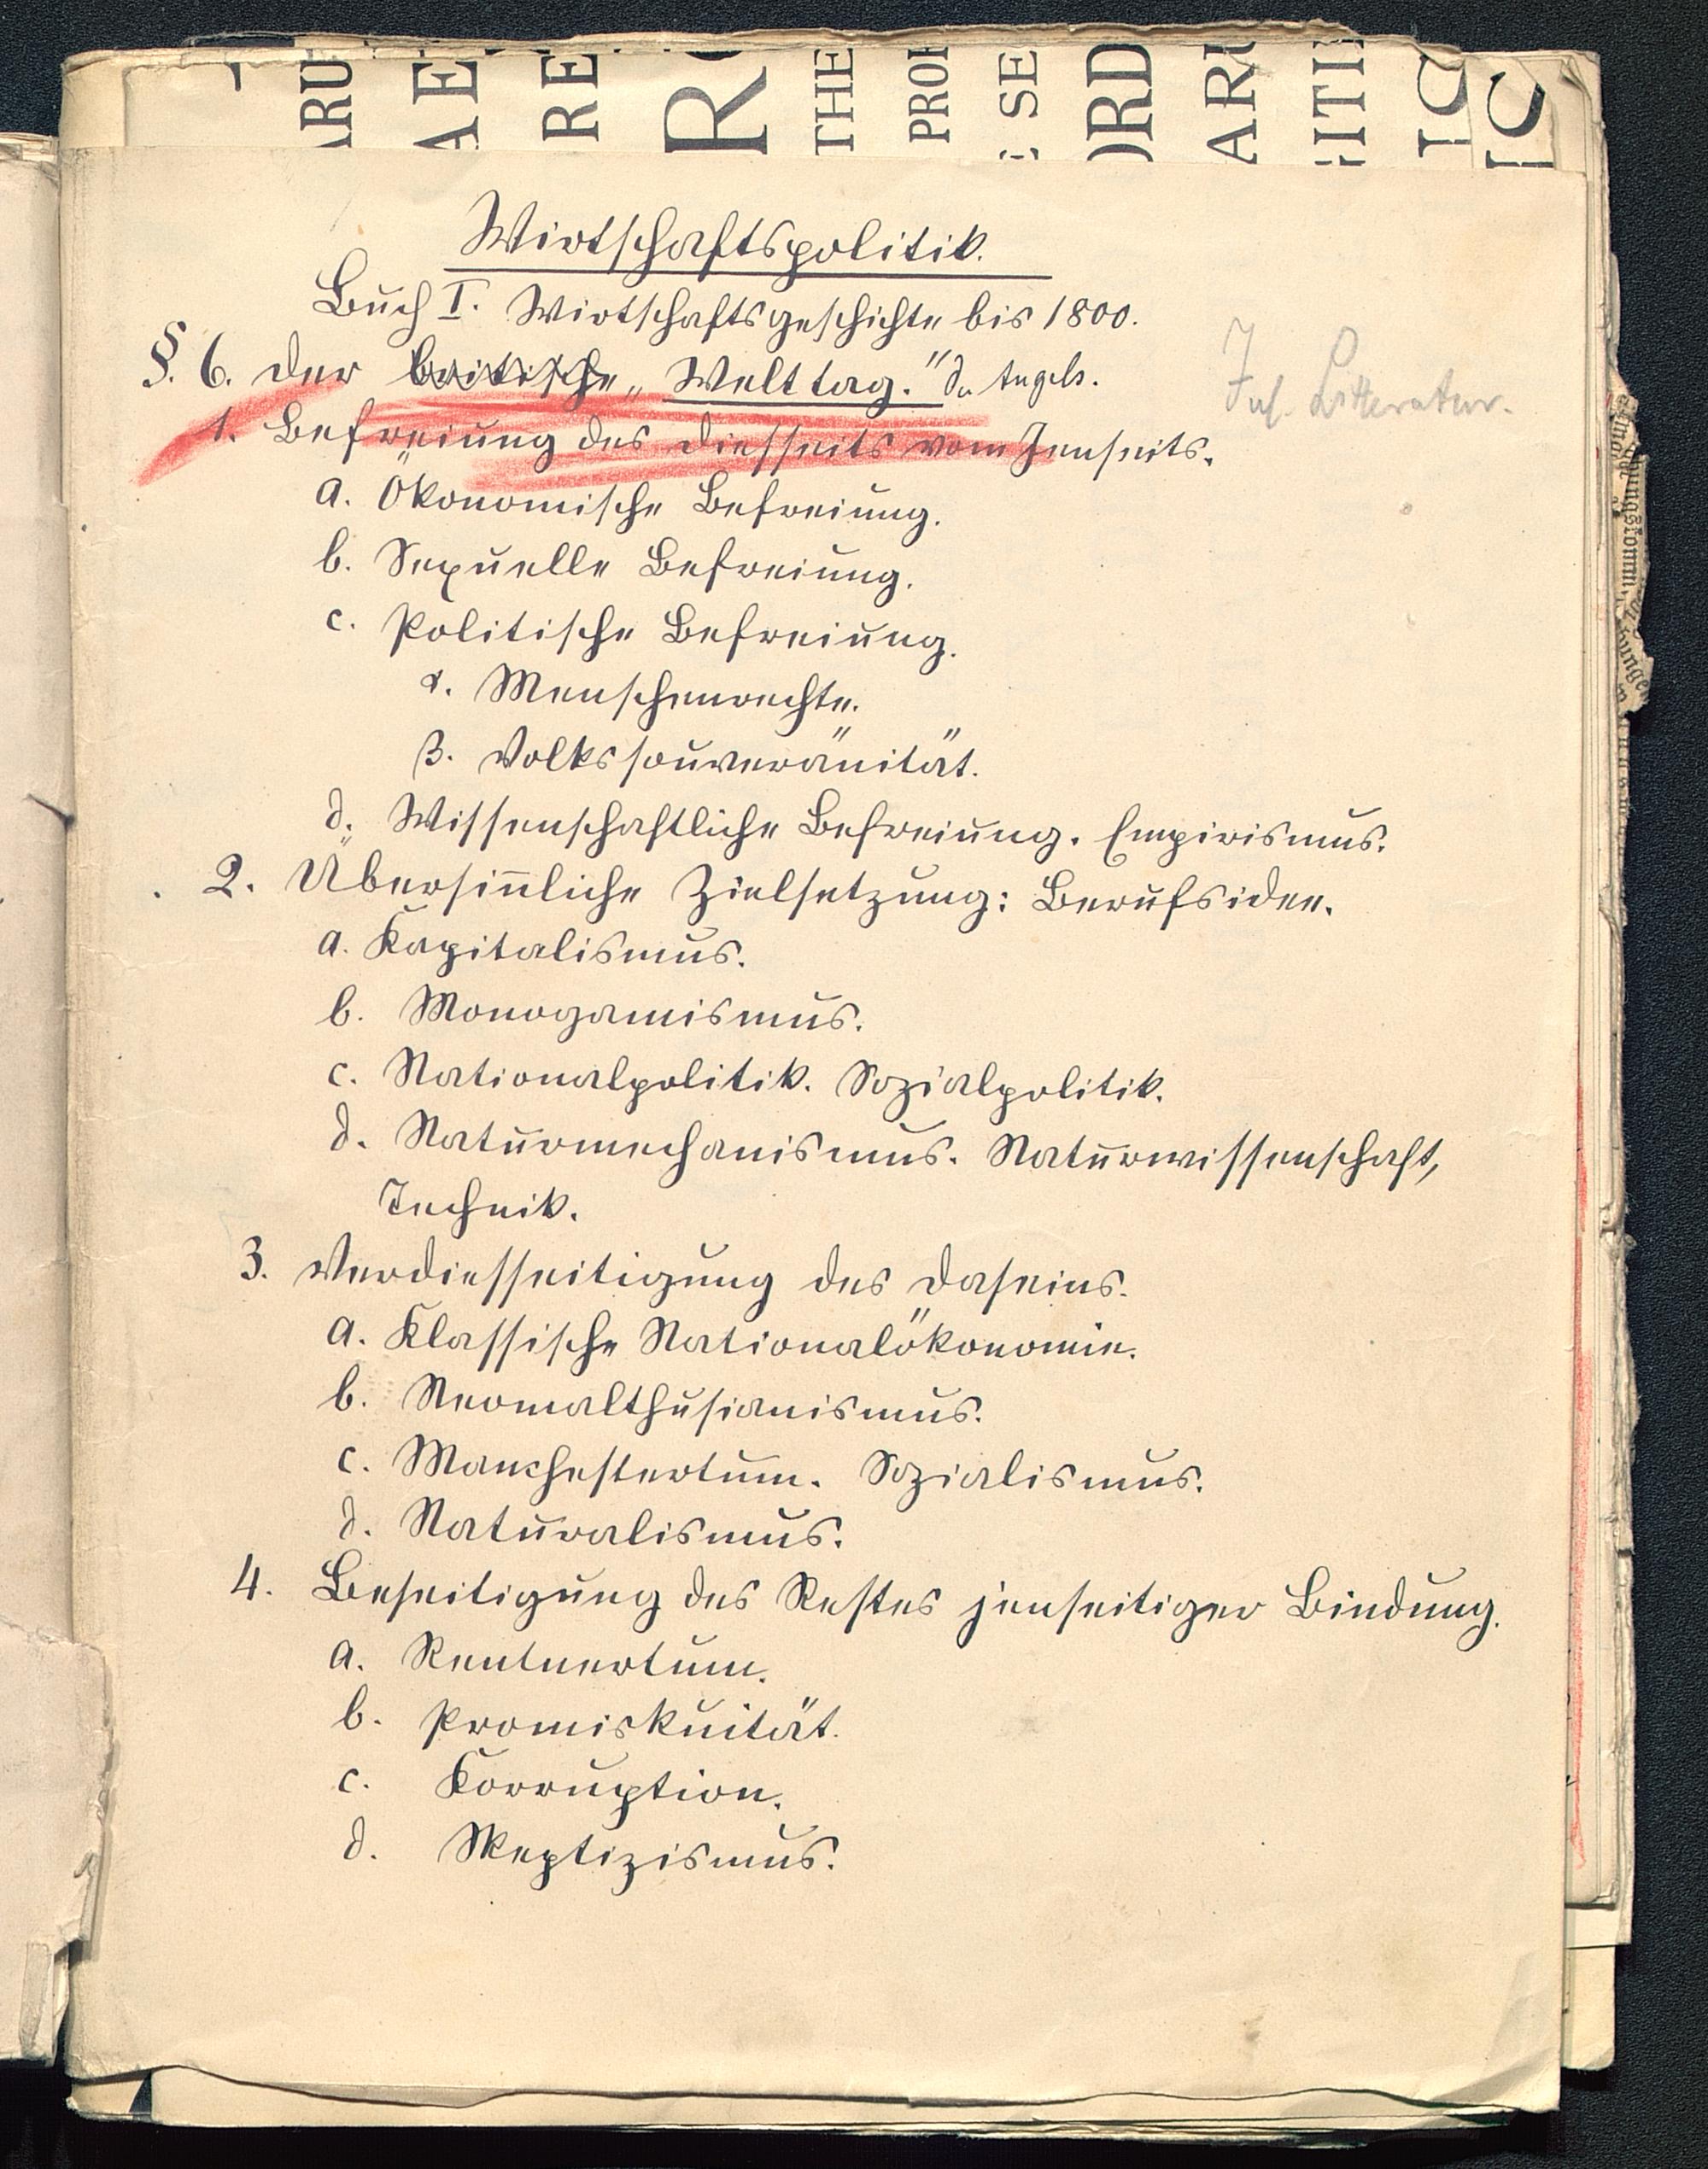 ARU
AE
RE
RO
THE
PROF
: SE
ORD
ARI
ITI
IC
IC
Wirtschaftspolitik.
Buch I. Wirtschaftsgeschichte bis 1800.
§. 6. Der britische „Welttag." d. Angels.
Inh. Litteratur.
1. Befreiung des Diesseits vom Jenseits.
a. Ökonomische Befreiung.
b. Sexuelle Befreiung.
c. Politische Befreiung.
α. Menschenrechte.
β. Volkssouveränität.
d. Wissenschaftliche Befreiung. Empirismus.
2. Übersin̄liche Zielsetzung: Berufsidee.
a. Kapitalismus.
b. Monogamismus.
c. Nationalpolitik. Sozialpolitik.
d. Naturmechanismus. Naturwissenschaft,
Technik.
3. Verdiesseitigung des Daseins.
a. Klassische Nationalökonomie.
b. Neomalthusianismus.
c. Manchestertum. Sozialismus.
d. Naturalismus.
4. Beseitigung des Restes jenseitiger Bindung.
a. Rentnertum.
b. Promiskuität.
c. Korruption.
d. Skeptizismus.